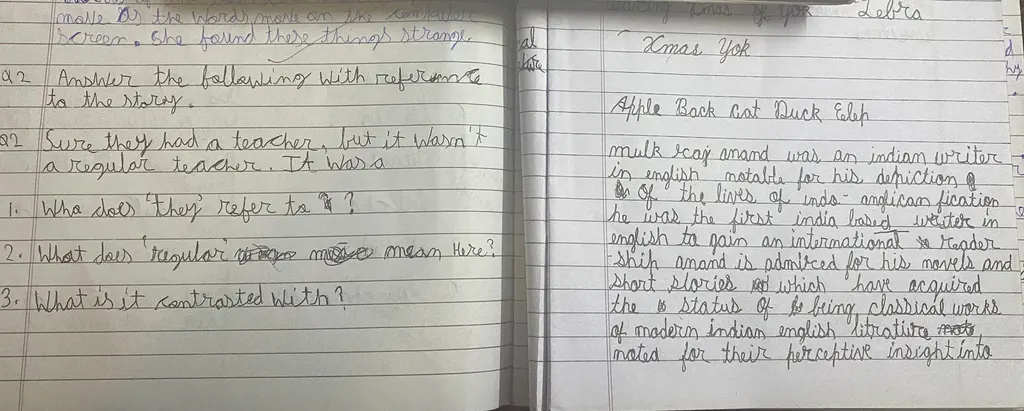 move as the words move on the computer
screen. she found these things strange.
Q2 Answer the following with reference
to the story.
Q2 Sure they had a teacher, but it wasn't
a regular teacher. It was a
1. Who does 'they' refer to ?
2. What does 'regular' mean Here?
3. What is it contrasted with?
Xmas of yok Zebra
Xmas Yok
Apple Back Cat Duck Elep
mulk raj anand was an indian writer
in english notable for his depiction
Of the lives of indo-anglican fication
he was the first india based writer in
english to gain an international reader
-ship anand is admired for his novels and
short stories which have acquired
the status of being classical works
of modern indian english litrature
noted for their perceptive insight into